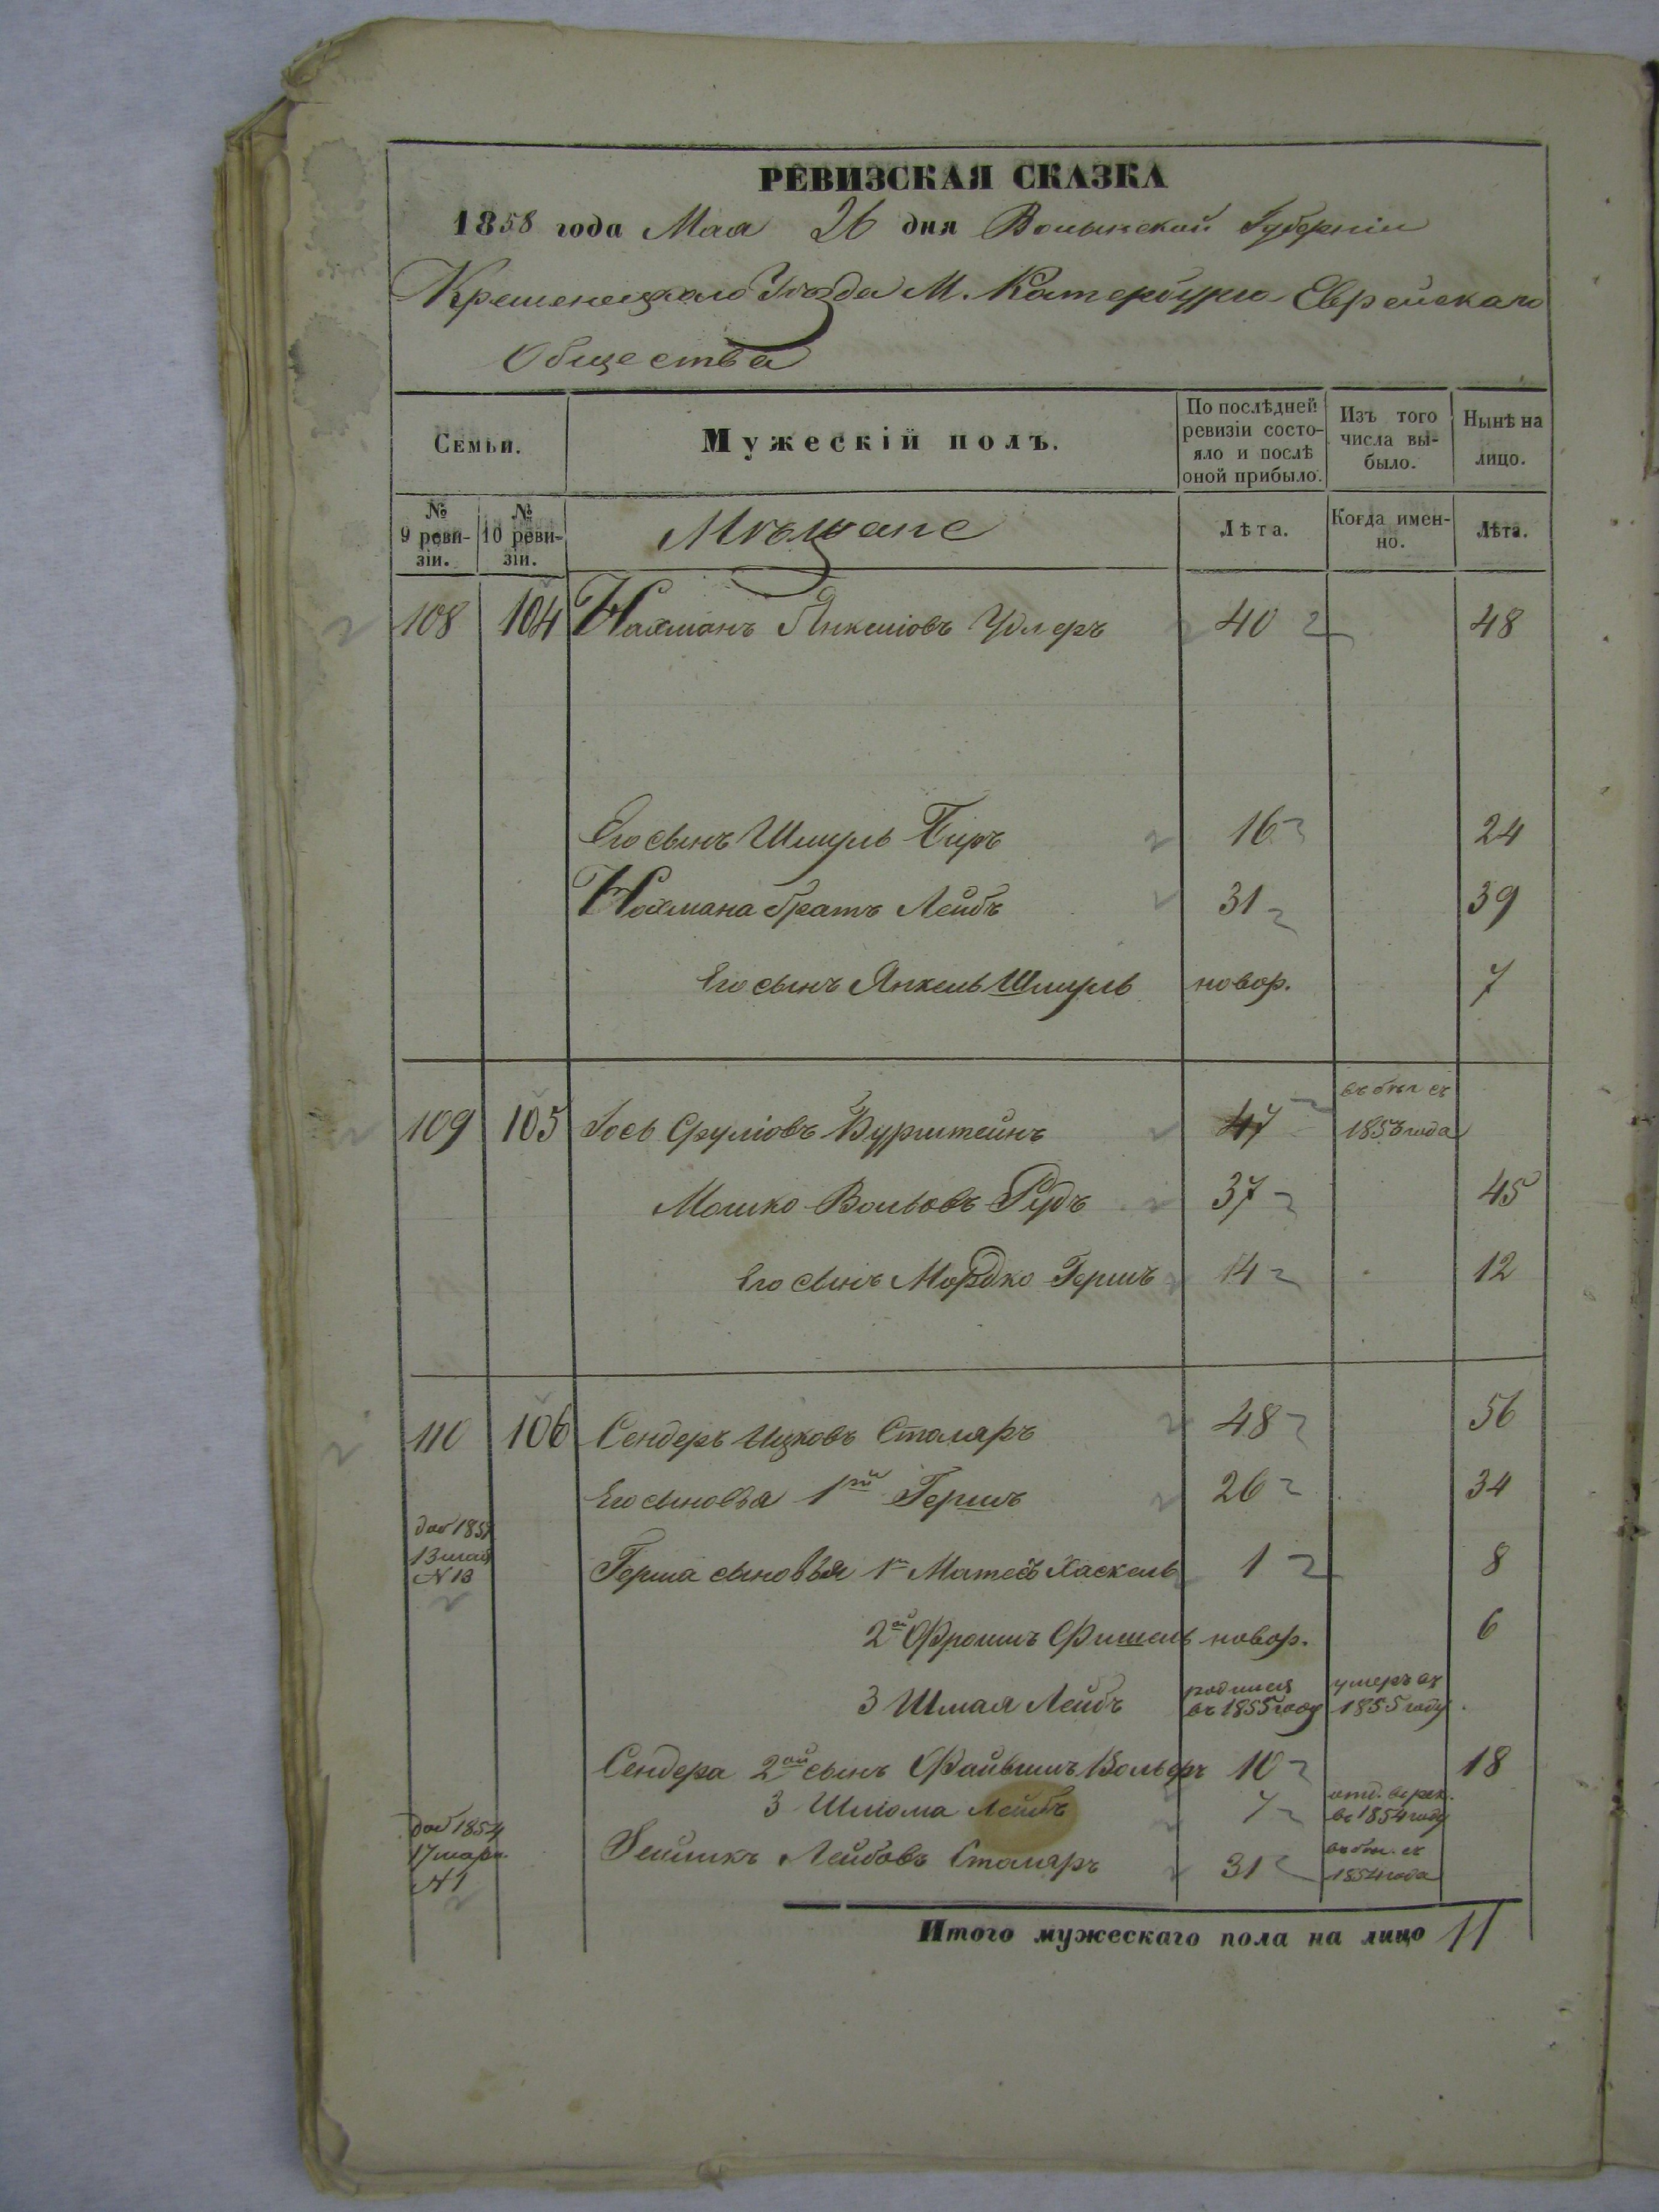 РЕВИЗСКАЯ СКАЗКА
1858 года Мая 26 дня Волынской Губерніи
Кременецкаго Уѣзда М. Катербурга Еврейскаго
Общества
Семьи.
Мужескій полъ.
По послѣдней ревизіи состояло и послѣ оной прибыло.
Изъ того числа выбыло.
Нынѣ на лицо.
№ 9 ревизіи.
№ 10 ревизіи.
Мѣщане
Лѣта.
Когда именно.
Лѣта.
108 104 Нахманъ Янкеліовъ Удлеръ 40 48
Его сынъ Шмуль Биръ 16 24
Нахмана братъ Лейбъ 31 39
Его сынъ Янкель Шмуль новор. 7
109 105 Іось Сруліовъ Бурштейнъ 47 въ бѣг. съ
1853 года
Мошко Вольовъ Рудъ 37 45
Его сынъ Мордко Гершъ 14 12
110 106 Сендеръ Ицковъ Столяръ 48 56
Его сыновья 1ый Гершъ 26 34
13 мая
№ 13
Герша сыновья 1й Хаскель 1 8
2ой Фроимъ Фишель новор. 6
3 Шмая Лейбъ родился въ 1855 году умеръ въ 1855 году
Сендера 2ой сынъ Файвишъ Вольфъ 10 18
3 Шліома Лейбъ 7 отд. въ рек.
въ 1854 году
доб 1854
17 март.
№ 1
Лейбовъ Столяръ 31 въ бѣг. съ
1854 года
Итого мужескаго пола на лицо 11